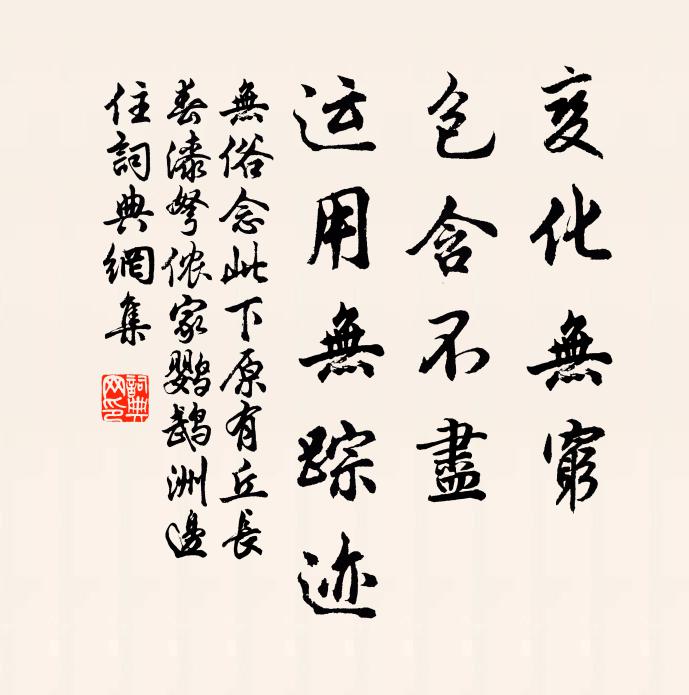 变化無窮
包含不盡
运用無踪迹
無俗念此下原有丘長
春漆弩侬家鹦鹉洲邊
住詞典網集
詞典
网印